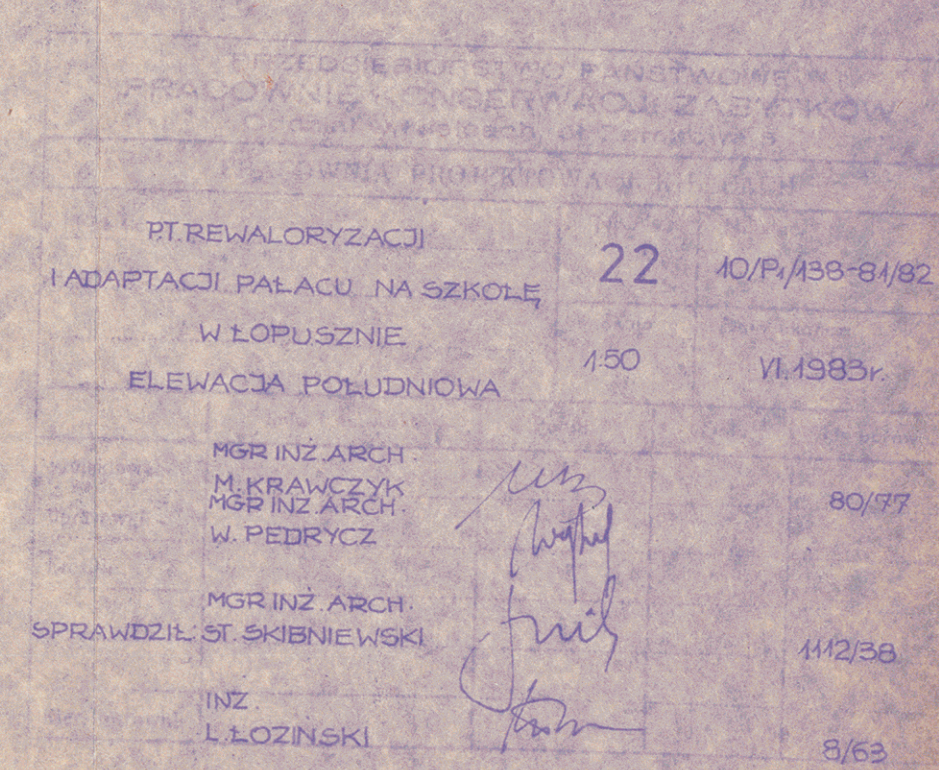 PRZEDSIĘBIORSTWO PAŃSTWOWE
PRACOWNIE KONSERWACJI ZABYTKÓW
PRACOWNIA PROJEKTOWA W KIELCACH
P.T. REWALORYZACJI
I ADAPTACJI PAŁACU NA SZKOŁĘ
W ŁOPUSZNIE
ELEWACJA POŁUDNIOWA
22
10/P1/138-81/82
1:50
VI.1983r.
MGR INŻ. ARCH.
M. KRAWCZYK
80/77
MGR INŻ. ARCH.
W. PEDRYCZ
MGR INŻ. ARCH.
SPRAWDZIŁ: ST. SKIBNIEWSKI
1112/38
INŻ.
L. ŁOZIŃSKI
8/63